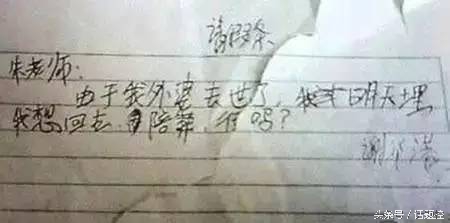 请假条
朱老师:
由于我外婆去世了,我 明天埋
我想回去 陪葬,行吗?
谢
头条号/话题堂